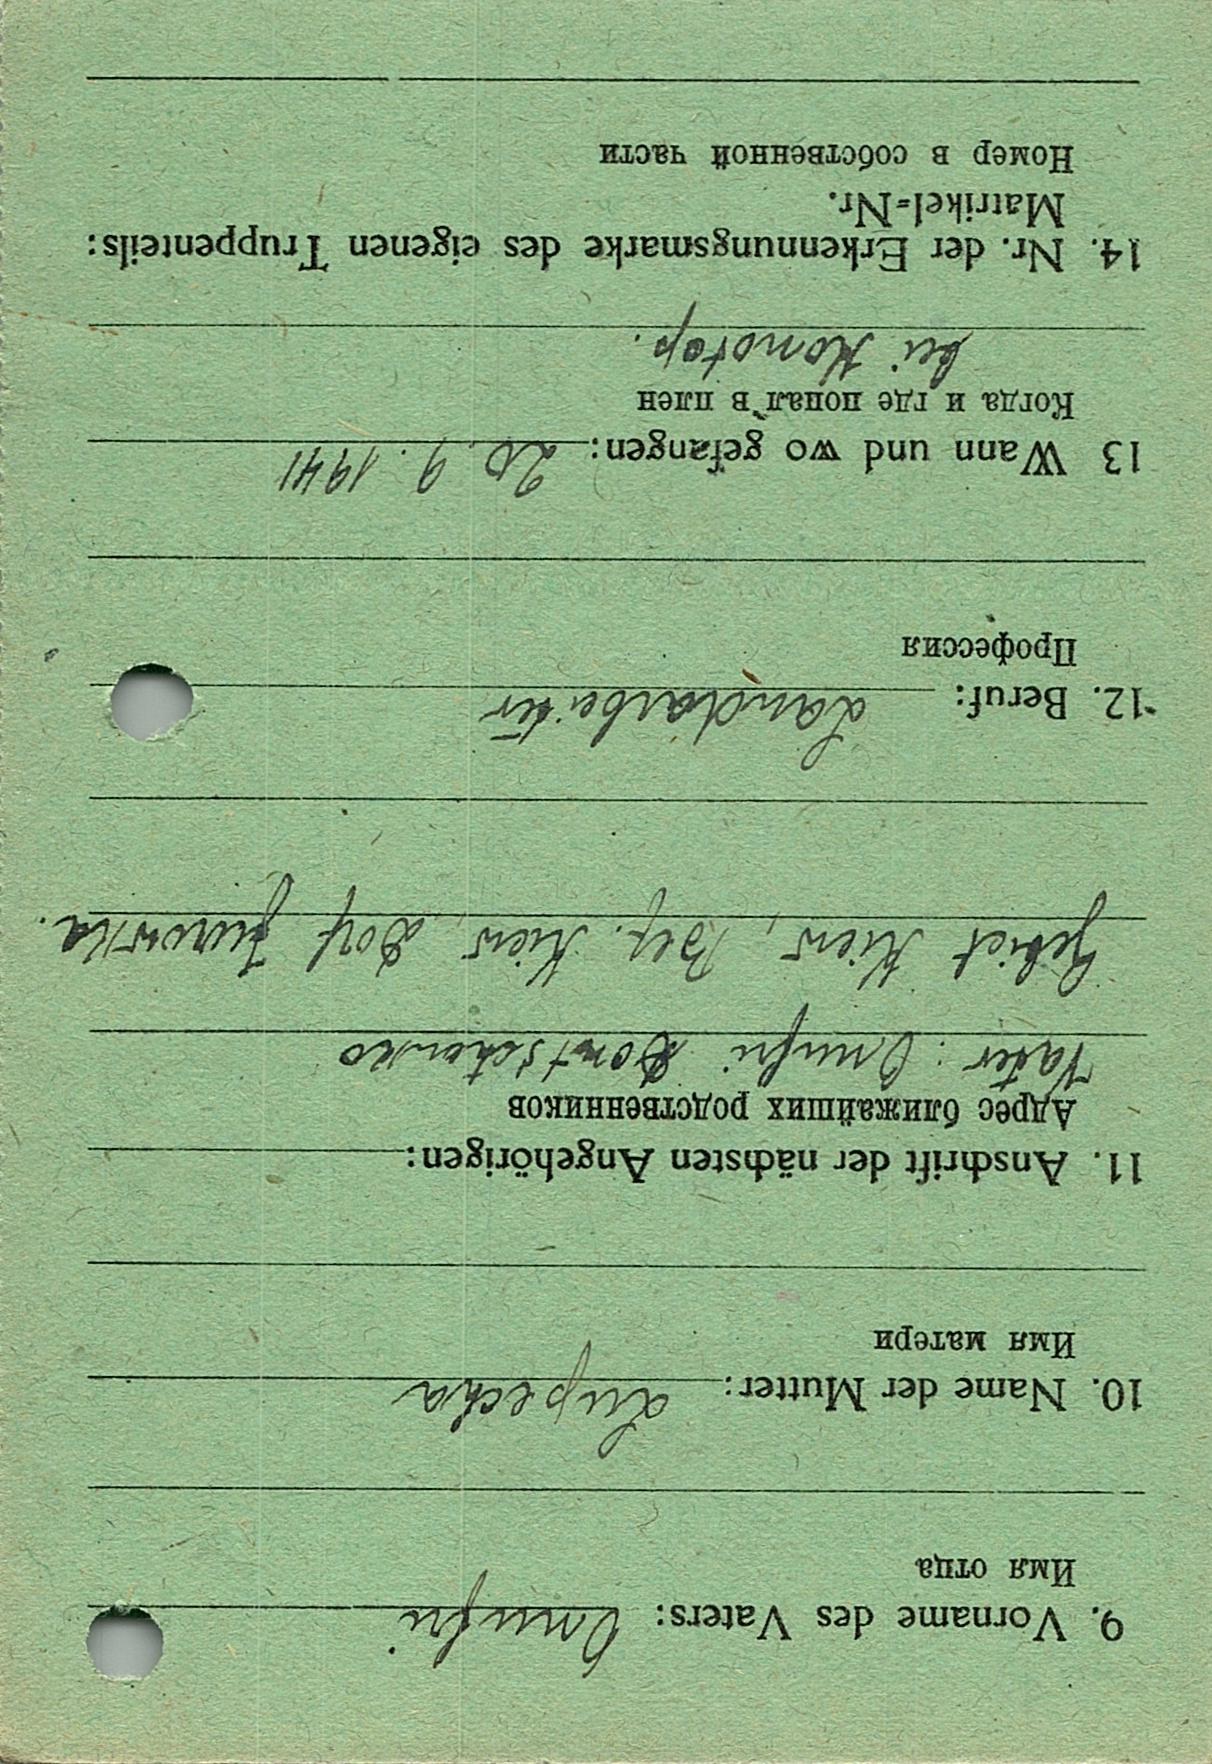 9. Vorname des Vaters: Onufri
Имя отца
10. Name der Mutter: Lupecha
Имя матери
11. Anschrift der nächsten Angehörigen:
Адрес ближайших родственников
Vater: Onufri Dontschenko
Gebiet Kiew, Bez. Kiew, Dorf Jurowka.
12. Beruf: Landarbeiter
Профессия
13 Wann und wo gefangen: 20. 9. 1941
Когда и где попал в плен
bei Konotop.
14. Nr. der Erkennungsmarke des eigenen Truppenteils:
Matrikel-Nr.
Номер в собственной части